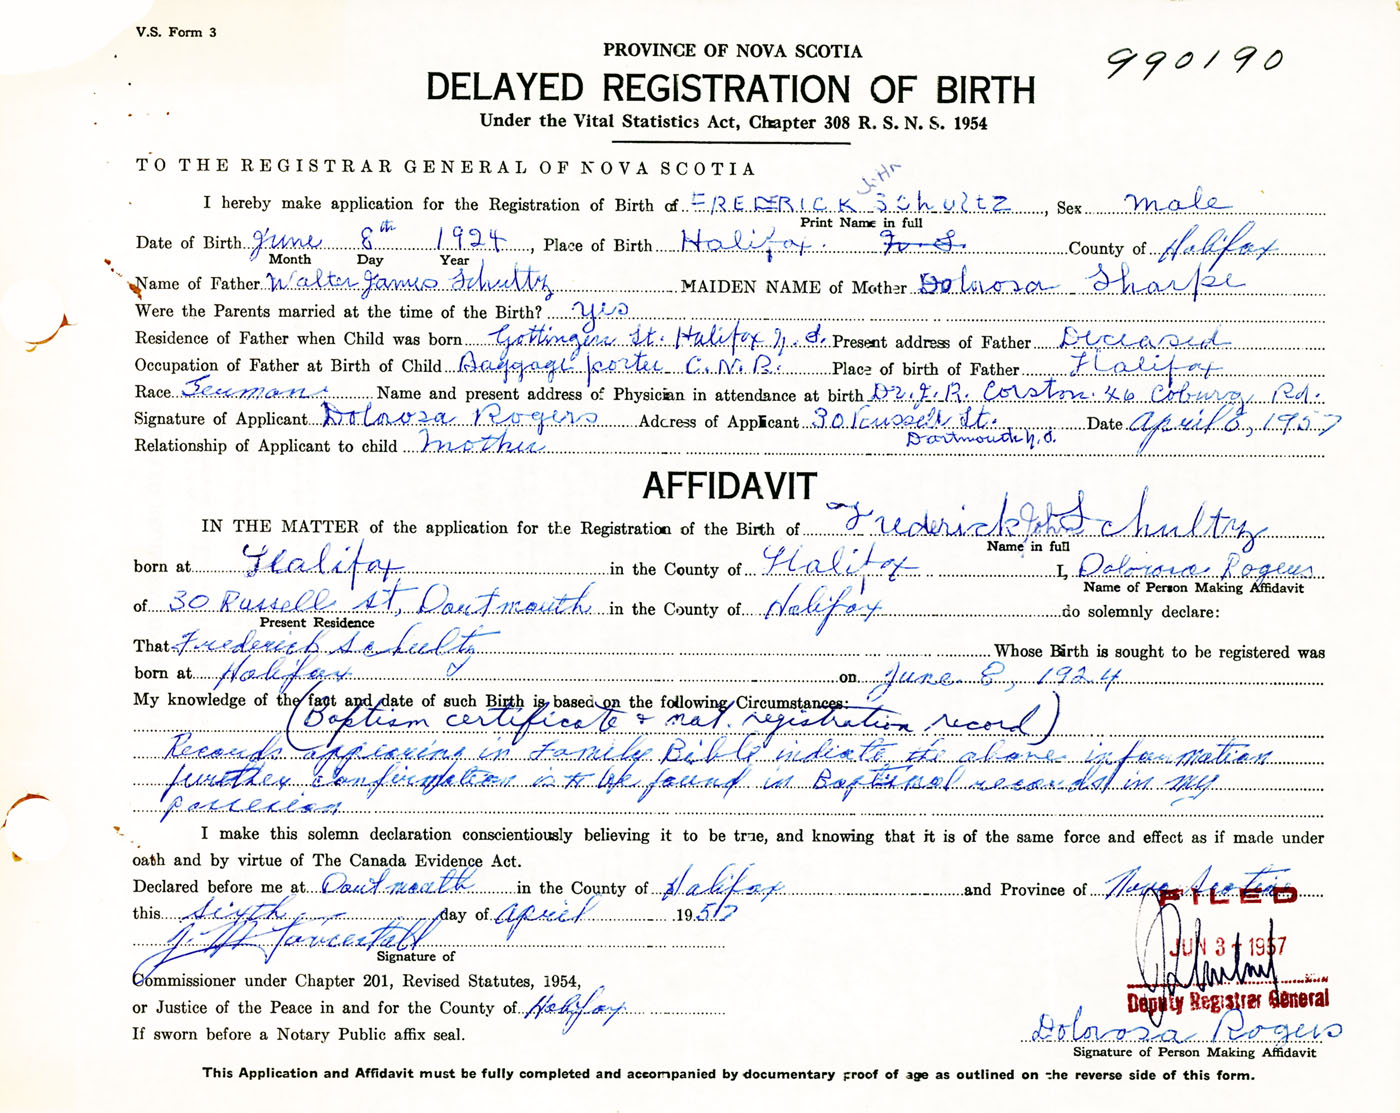 V.S. Form 3
990190
PROVINCE OF NOVA SCOTIA
DELAYED REGISTRATION OF BIRTH
Under the Vital Statistics Act, Chapter 308 R. S. N. S. 1954
TO THE REGISTRAR GENERAL OF NOVA SCOTIA
John
I hereby make application for the Registration of Birth of FREDERICK SChultz, Sex male
Print Name in full
Date of Birth June 8th 1924, Place of Birth Halifax. N. S. County of Halifax
Month Day Year
Name of Father Walter James Schultz MAIDEN NAME of Mother Dolorosa Sharpe
Were the Parents married at the time of the Birth? yes
Residence of Father when Child was born Gottingen St. Halifax N. S. Present address of Father Deceased
Occupation of Father at Birth of Child Baggage porter C. N. R. Place of birth of Father Halifax
Race German Name and present address of Physician in attendance at birth Dr. J. R. Corston 46 Coburg Rd.
Signature of Applicant Dolorosa Rogers Address of Applicant 30 Russell St. Date April 6, 1957
Dartmouth N. S.
Relationship of Applicant to child Mother
AFFIDAVIT
IN THE MATTER of the application for the Registration of the Birth of Frederick John Schultz
Name in full
born at Halifax in the County of Halifax I, Dolorosa Rogers
Name of Person Making Affidavit
of 30 Russell St, Dartmouth in the County of Halifax do solemnly declare:
Present Residence
That Frederick Schultz Whose Birth is sought to be registered was
born at Halifax on June 8, 1924
My knowledge of the fact and date of such Birth is based on the following Circumstances:
(Baptism certificate & nat. registration record)
Records appearing in Family Bible indicate the above information
further confirmation is to be found in Baptismal records in my
possession
I make this solemn declaration conscientiously believing it to be true, and knowing that it is of the same force and effect as if made under
oath and by virtue of The Canada Evidence Act.
Declared before me at Dartmouth in the County of Halifax and Province of Nova Scotia
this sixth day of April 1957
FILED
JUN 3 - 1957
Signature of
Commissioner under Chapter 201, Revised Statutes, 1954,
Deputy Registrar General
or Justice of the Peace in and for the County of Halifax
Dolorosa Rogers
If sworn before a Notary Public affix seal.
Signature of Person Making Affidavit
This Application and Affidavit must be fully completed and accompanied by documentary proof of age as outlined on the reverse side of this form.